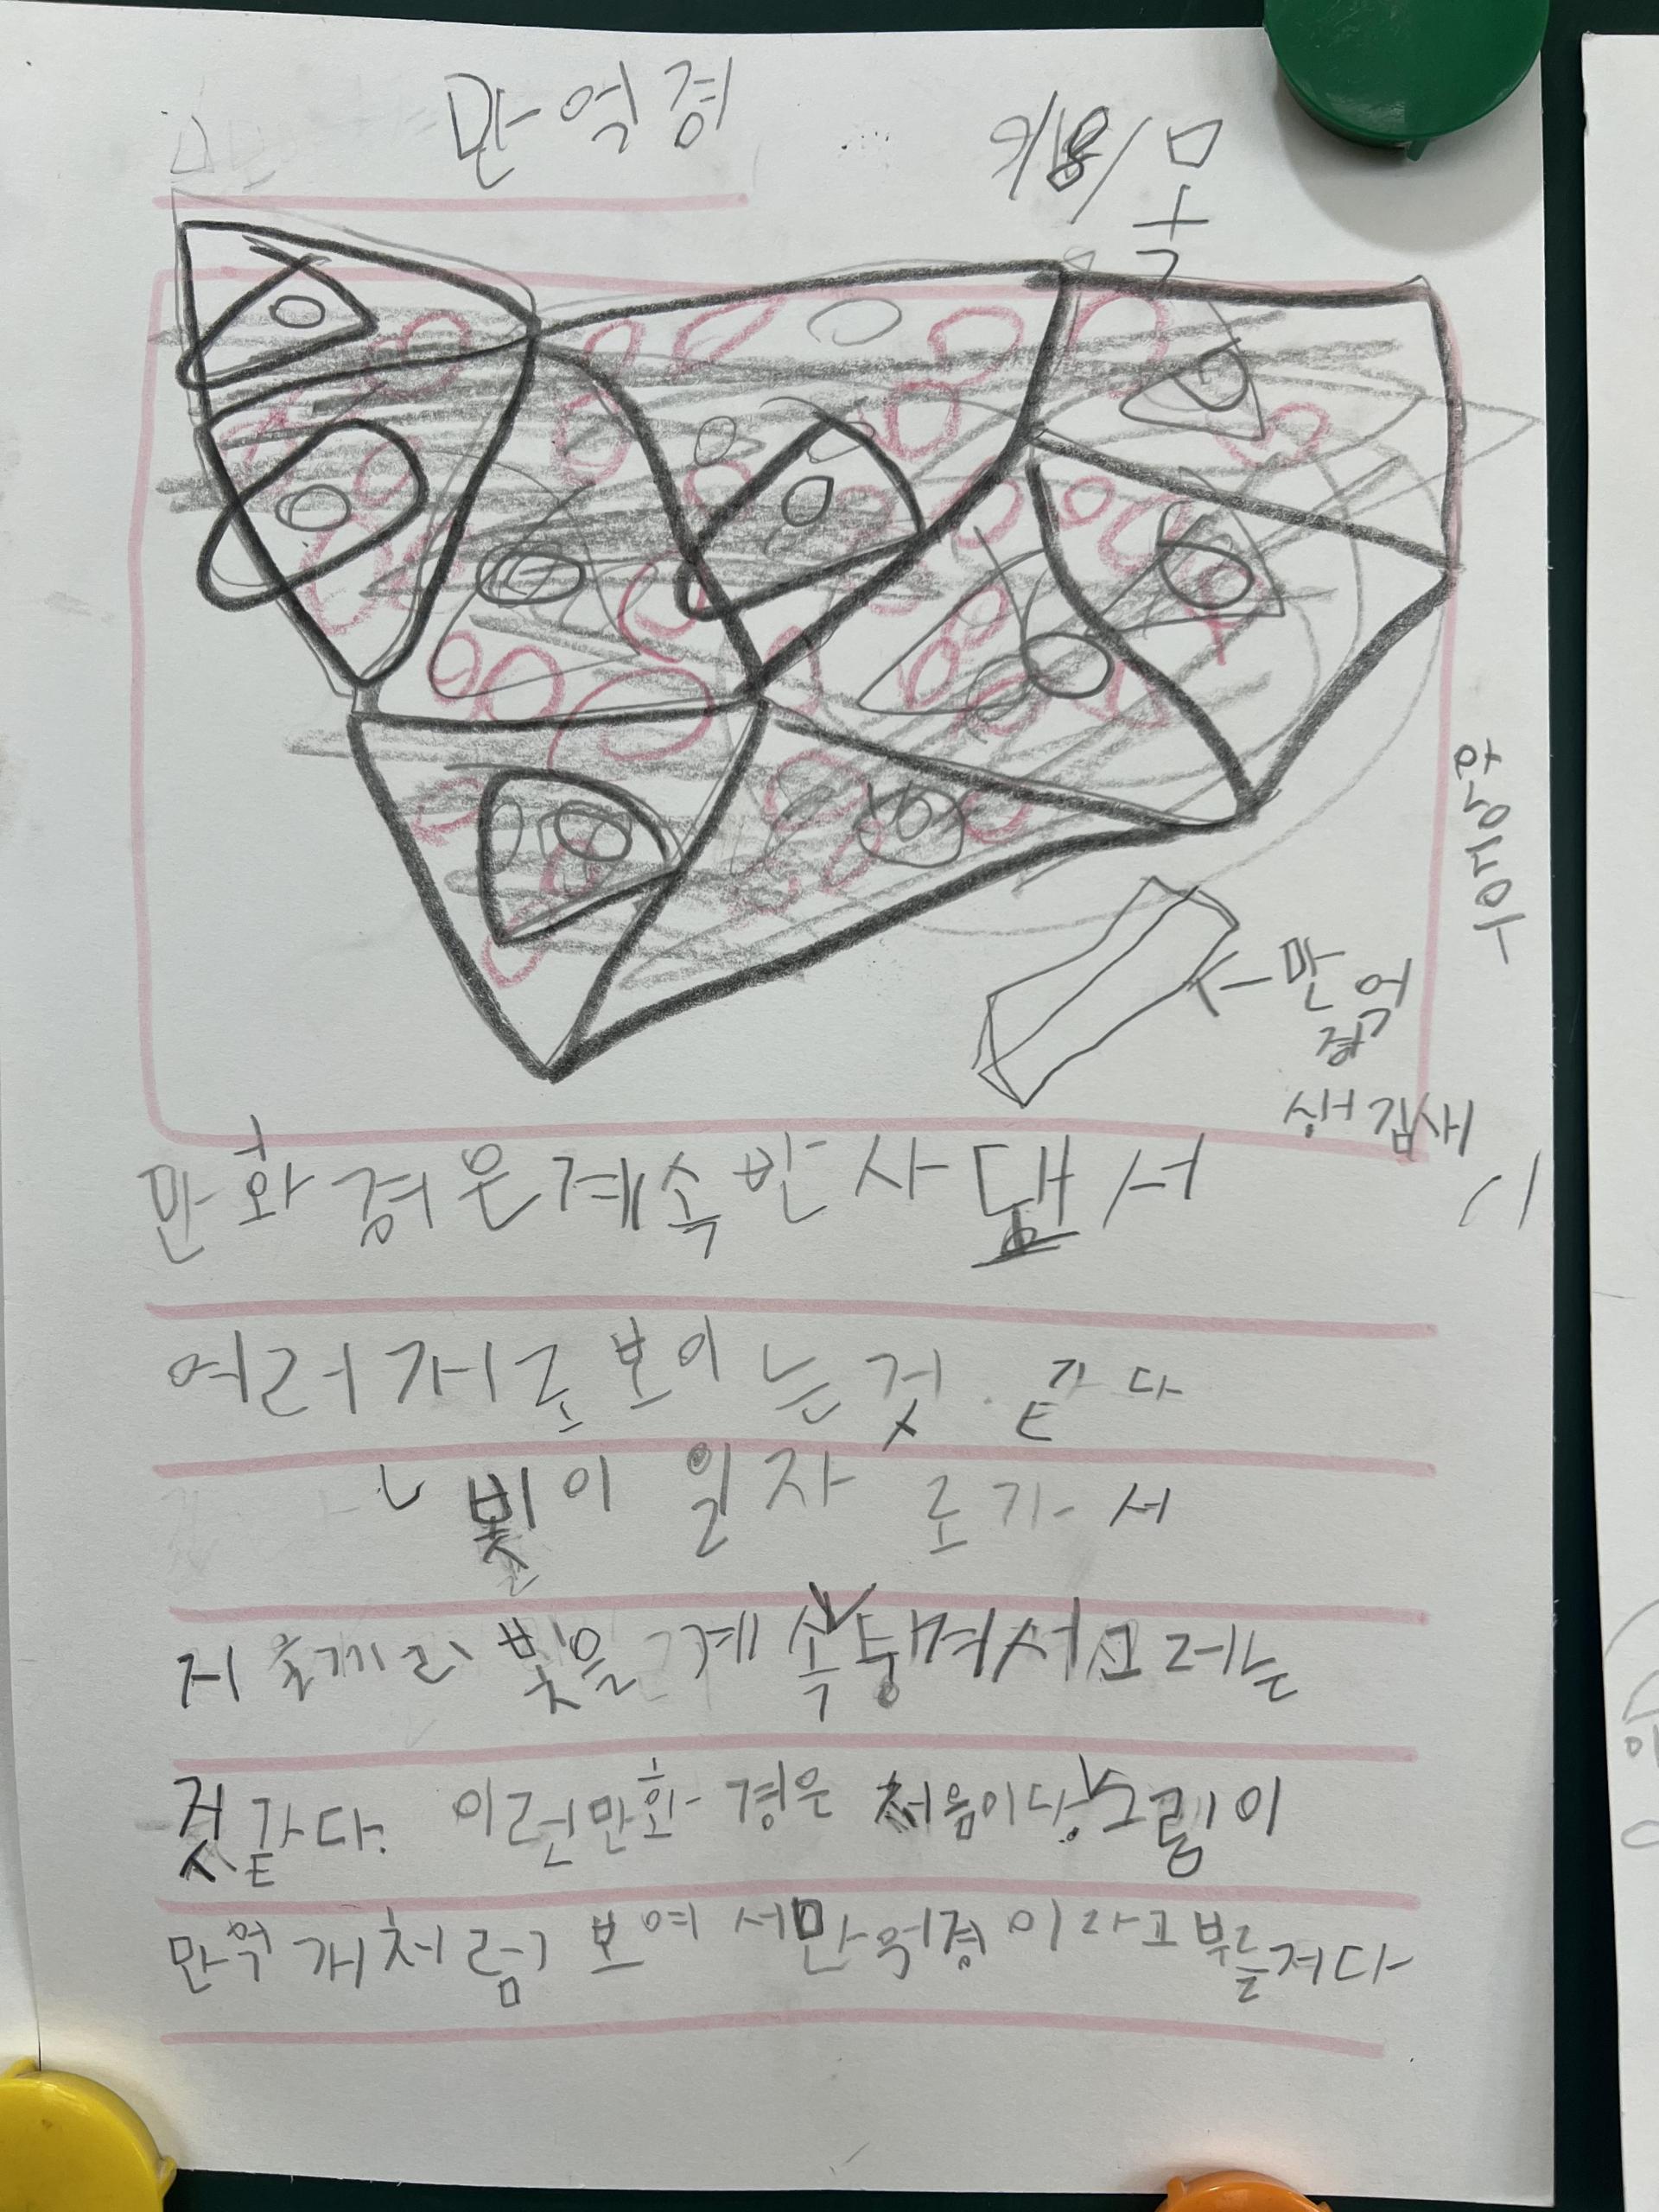 만억경
9/18/목
황지우
←만억
경
생김새
만화경은계속반사댐서
여러개로보이는것 같다
빛이 일자로가서
빛을 계속
것같다. 이런만화경은 처음이다. 그림이
만억개처럼 보여서만억경이라고부를거다